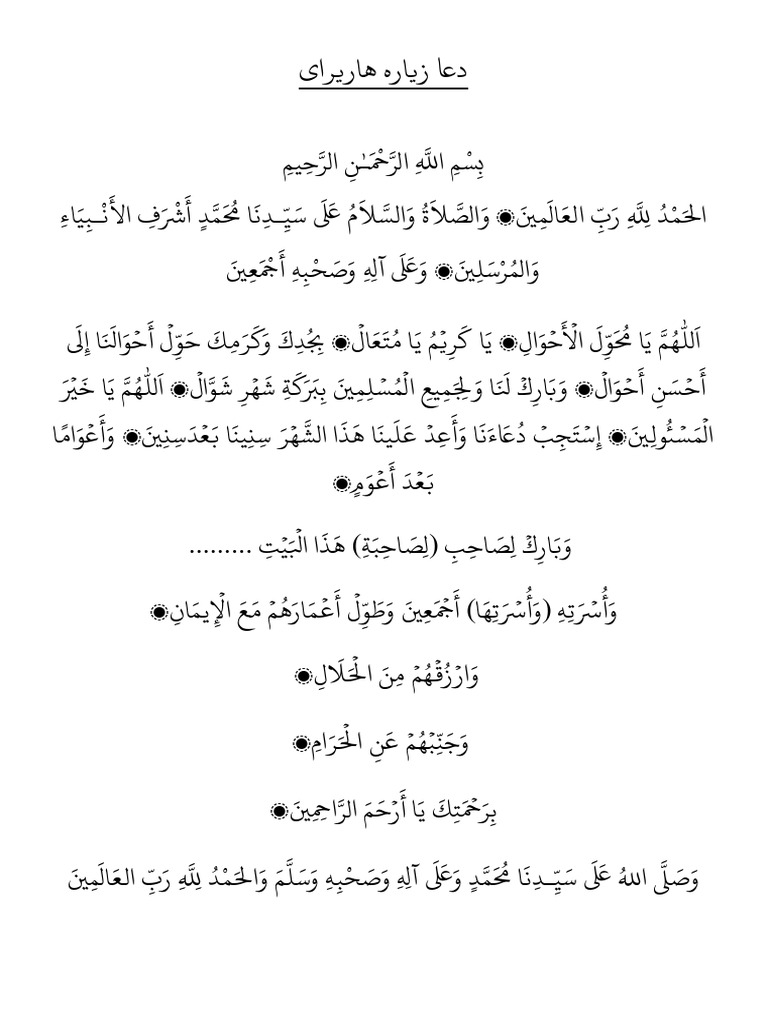 دعا زياره هاريراى
بِسْمِ اللَّهِ الرَّحْمَـٰنِ الرَّحِيمِ
الحَمْدُ لِلَّهِ رَبِّ العَالَمِينَ۞ وَالصَّلاَةُ وَالسَّلاَمُ عَلَى سَيِّـدِنَا مُحَمَّدٍ أَشْرَفِ الأَنْـبِيَاءِ
وَالمُرْسَلِينَ۞ وَعَلَى آلِهِ وَصَحْبِهِ أَجْمَعِينَ
اَللّٰهُمَّ يَا مُحَوِّلَ الْأَحْوَالِ۞ يَا كَرِيْمُ يَا مُتَعَالْ۞ بِجُدِكَ وَكَرَمِكَ حَوِّلْ أَحْوَالَنَا إِلَى
أَحْسَنِ أَحْوَالْ۞ وَبَارِكْ لَنَا وَلِجَمِيعِ الْمُسْلِمِينَ بِبَرَكَةِ شَهْرِ شَوَّالْ۞ اَللّٰهُمَّ يَا خَيْرَ
الْمَسْئُولِينَ۞ إِسْتَجِبْ دُعَاءَنَا وَأَعِدْ عَلَينَا هَذَا الشَّهْرَ سِنِينَا بَعْدَسِنِينَ۞ وَأَعْوَامًا
بَعْدَ أَعْوَمٍ۞
وَبَارِكْ لِصَاحِبِ (لِصَاحِبَةِ) هَذَا الْبَيْتِ .........
وَأُسْرَتِهِ (وَأُسْرَتِهَا) أَجْمَعِينَ وَطَوِّلْ أَعْمَارَهُمْ مَعَ الْإِيمَانِ۞
وَارْزُقْهُمْ مِنَ الْحَلَالِ۞
وَجَنِّبْهُمْ عَنِ الْحَرَامِ۞
بِرَحْمَتِكَ يَا أَرْحَمَ الرَّاحِمِينَ۞
وَصَلَّى اللهُ عَلَى سَيِّـدِنَا مُحَمَّدٍ وَعَلَى آلِهِ وَصَحْبِهِ وَسَلَّمَ وَالحَمْدُ لِلَّهِ رَبِّ العَالَمِينَ